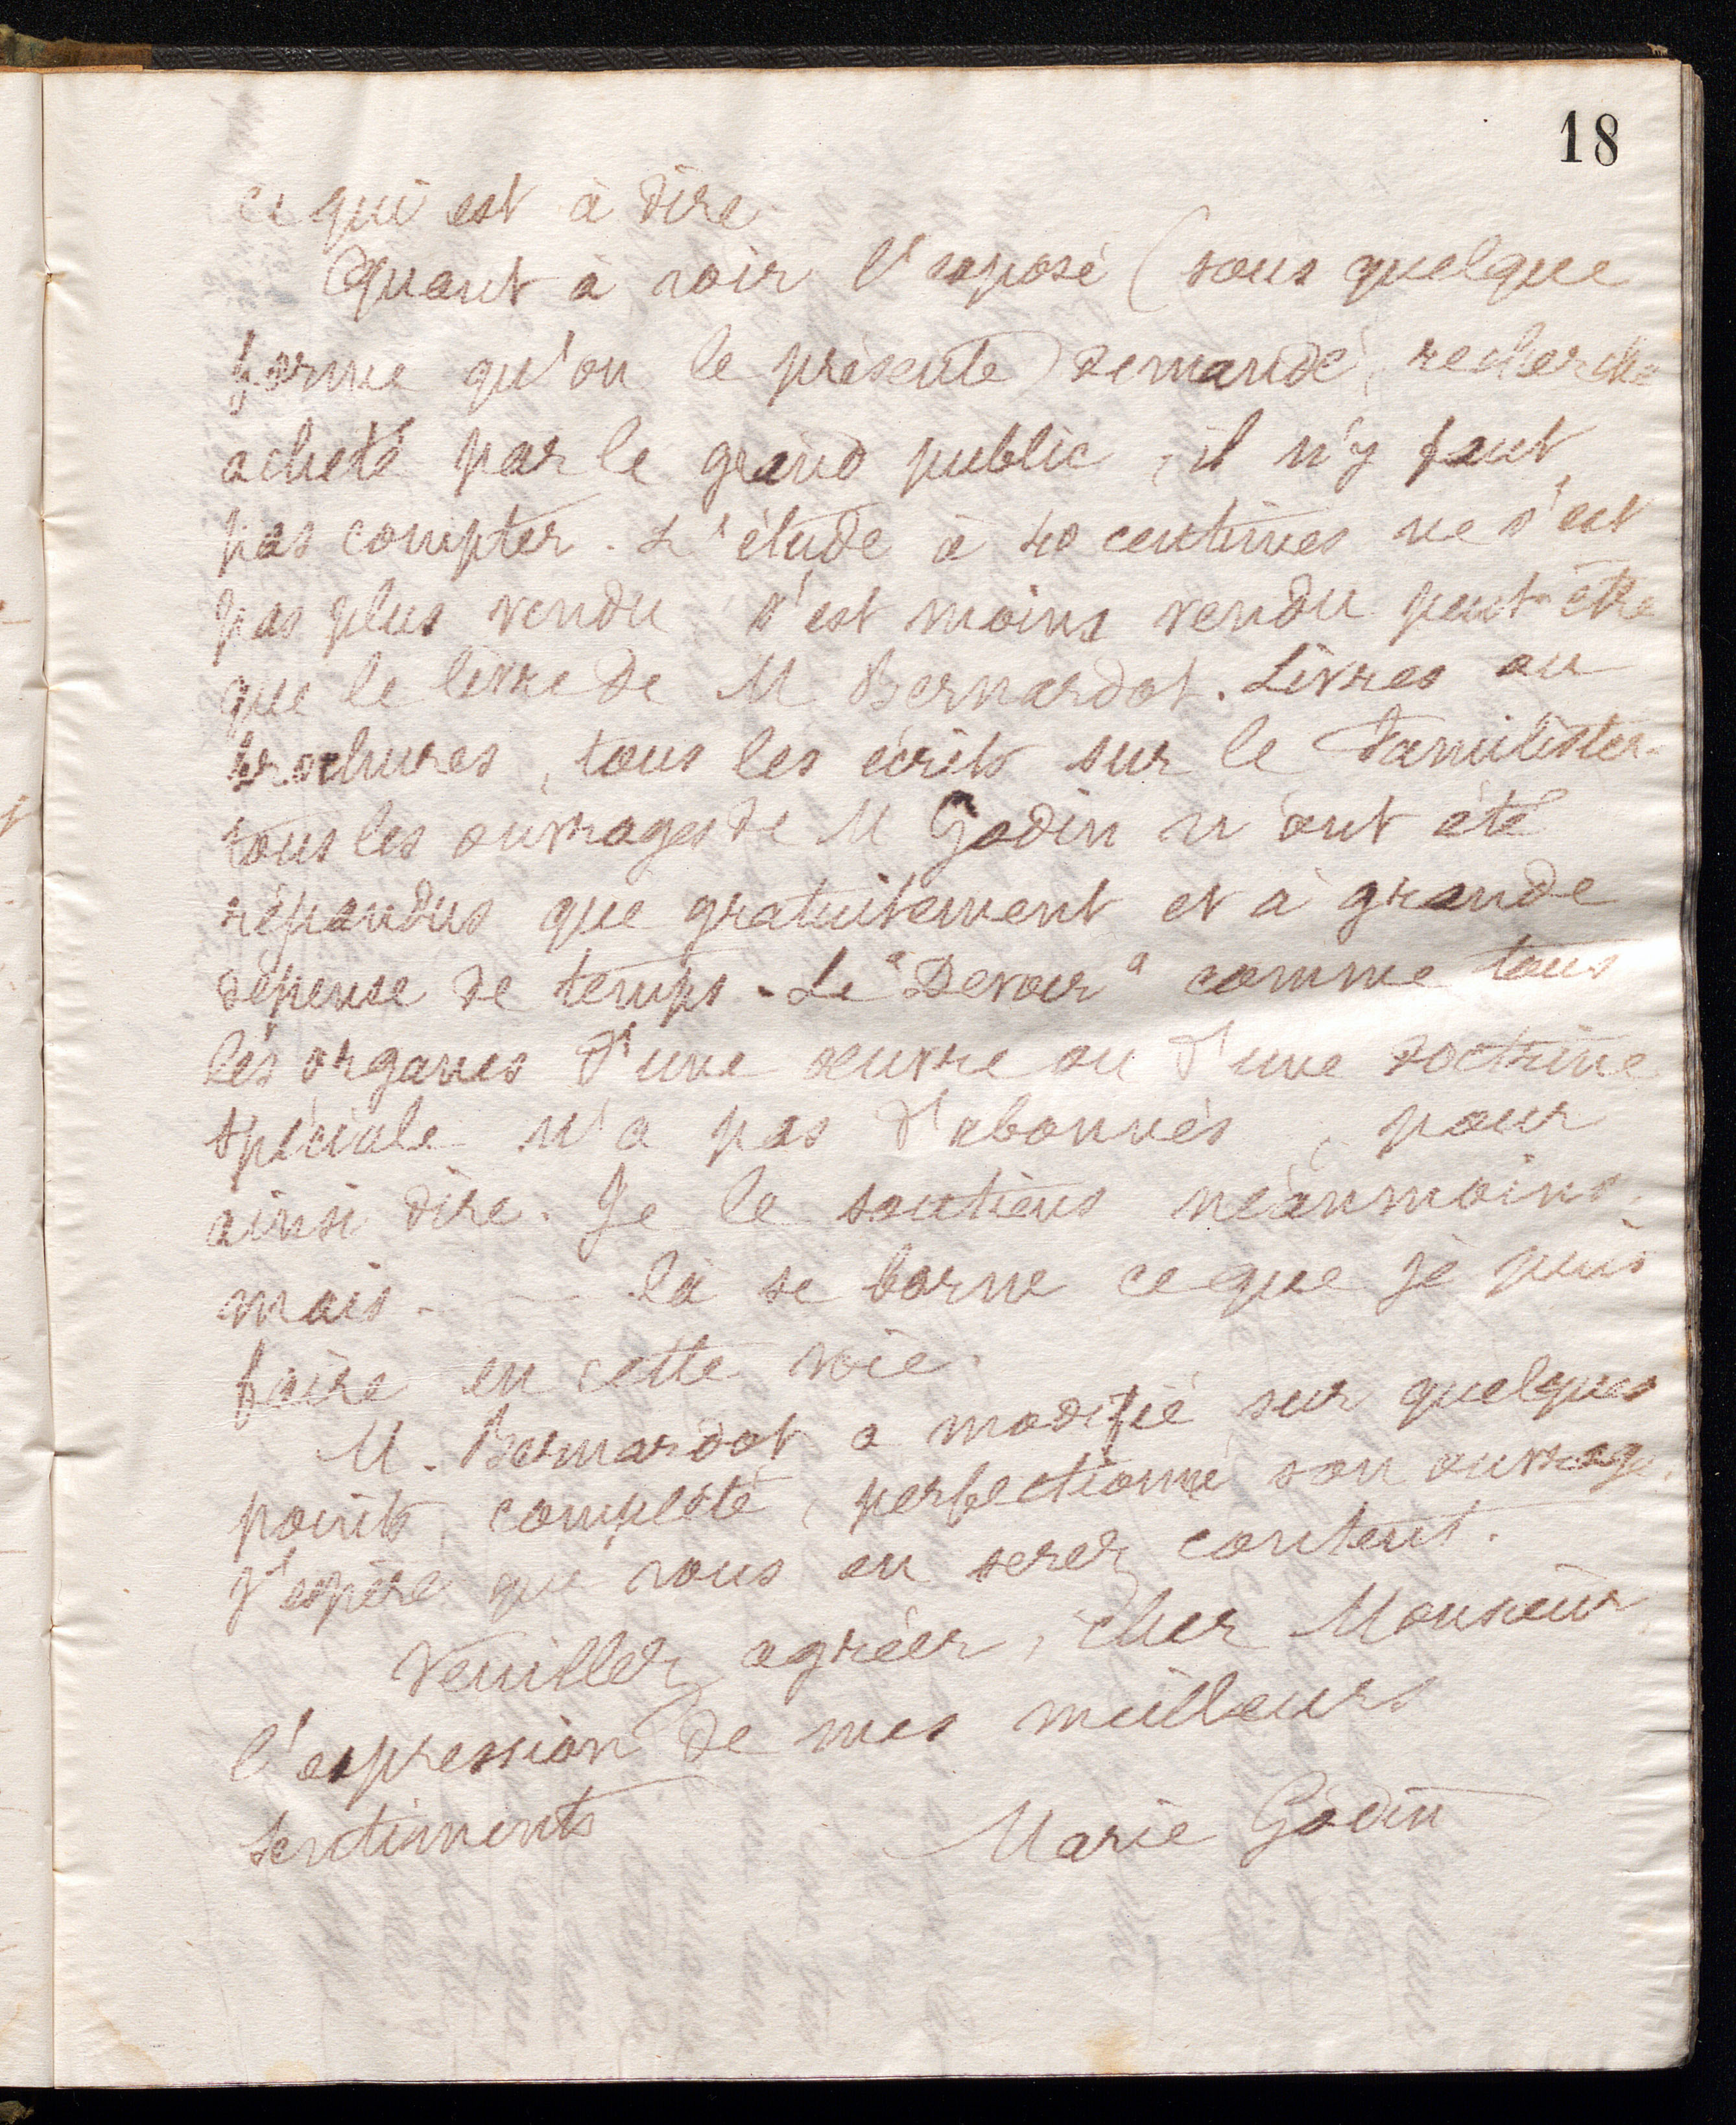 18
ce qui est à dire.
Quant à voir l'exposé (sous quelque
forme qu'on le présente) demandé, recherché
acheté par le grand public, il n'y faut
pas compter. L'étude à 40 centimes ne s'est
pas plus vendu, s'est moins vendu peut-être
que le livre de M Bernardot. Livres ou
brochures, tous les écrits sur le Familistère
tous les ouvrages de M Godin n'ont été
répandus que gratuitement et à grande
dépense de temps. Le "Devoir" comme tous
les organes d'une œuvre ou d'une doctrine
spéciale n'a pas d'abonnés, pour
ainsi dire. Je le soutiens néanmoins,
mais... là se borne ce que je puis
faire en cette voie.
M. Bernardot a modifié sur quelques
points, complété, perfectionné son ouvrage.
J'espère que vous en serez content.
Veuillez agréer, cher Monsieur,
l'expression de mes meilleurs
sentiments
Marie Godin